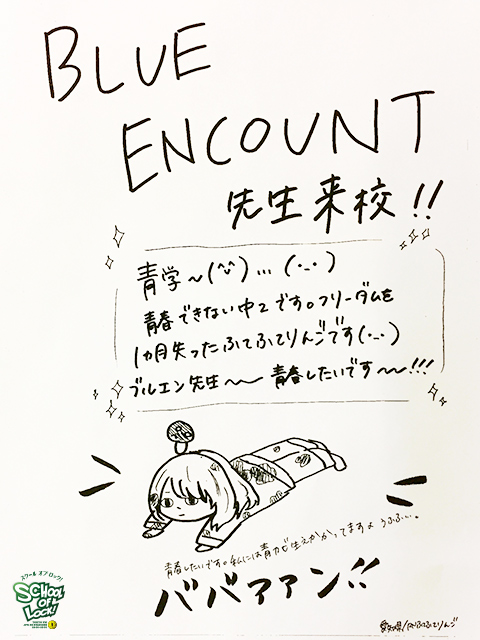 BLUE
ENCOUNT
先生来校!!
青学~(^^)…(・_・)
青春できない中2です。フリーダムを
1ヵ月失ったふてふてりんごです(・_・)
ブルエン先生~~ 青春したいです~~!!!
青春したいです。私には青カビ生えかかってます× うふふ…。
ババァァン!!
スクール オブ ロック!
SCHOOL OF LOCK!